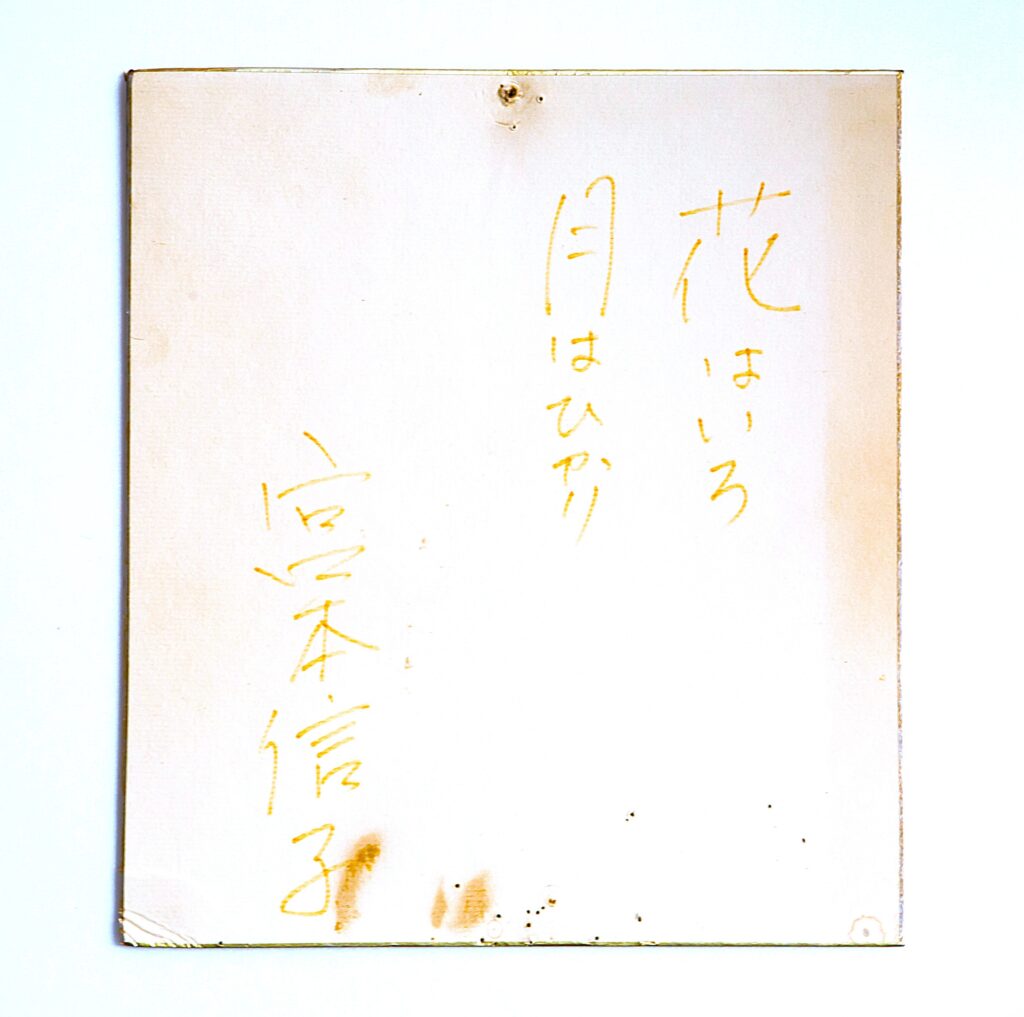 花はいろ
月はひかり
宮本信子